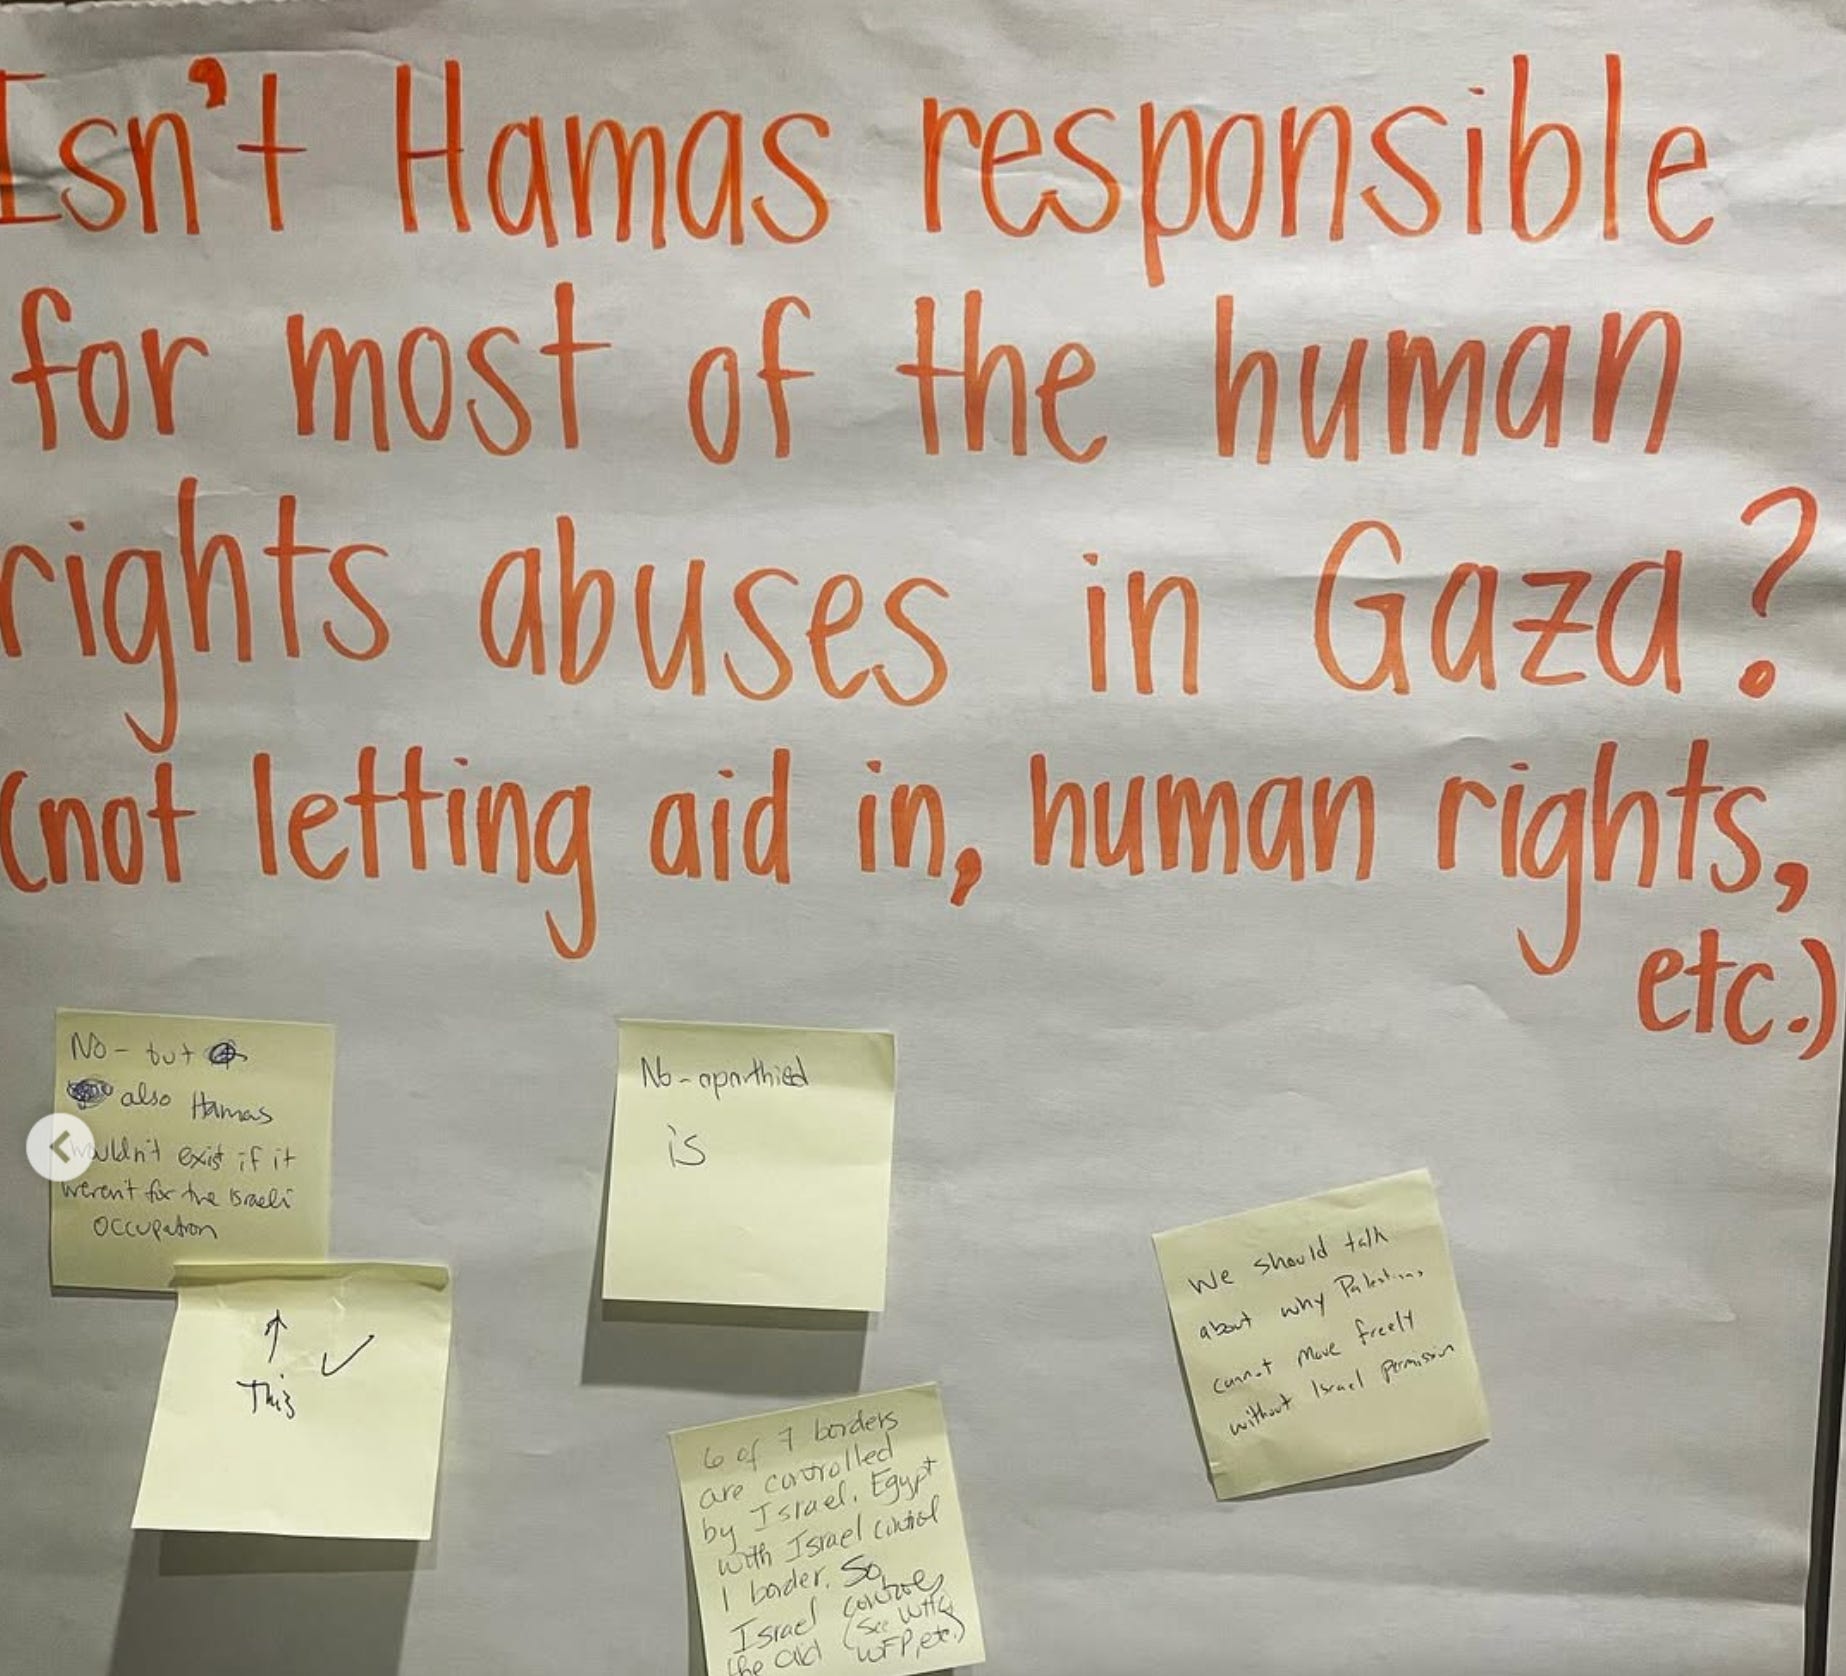 Isn't Hamas responsible
for most of the human
rights abuses in Gaza?
(not letting aid in, human rights,
etc.)
No - but
also Hamas
wouldn't exist if it
weren't for the Israeli
occupation
↑ ✓
This
No - aparthied
is
We should talk
about why Palestinians
cannot move freely
without Israel permission
6 of 7 borders
are controlled
by Israel. Egypt
with Israel control
1 border. So
Israel controls
the aid (See WHO,
WFP, etc.)